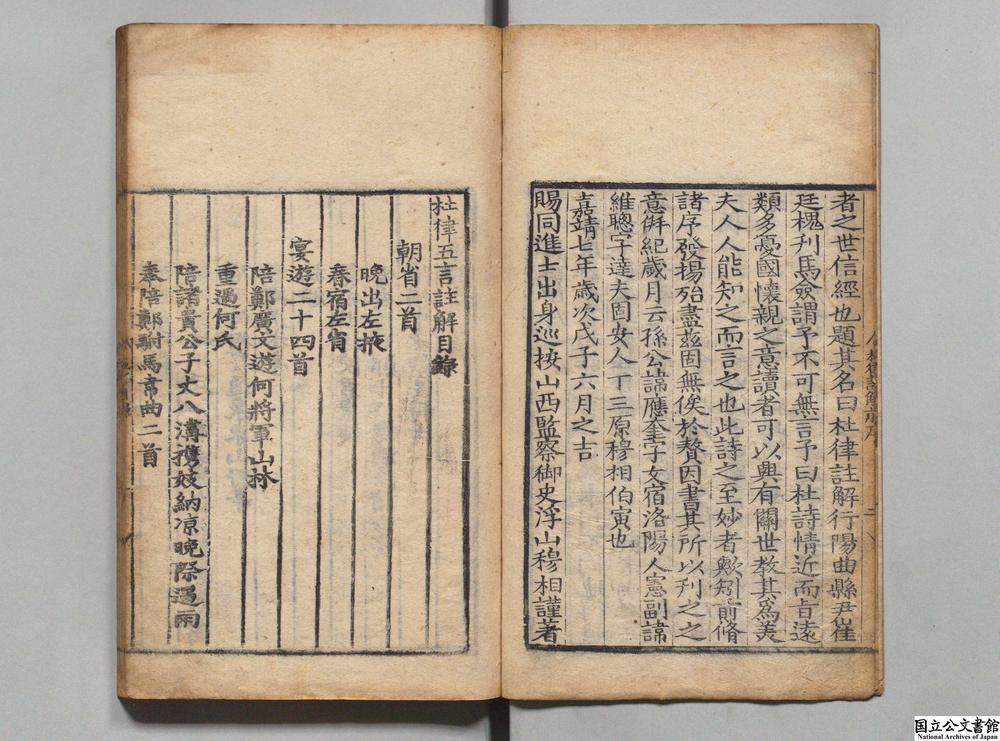 者之世信經也題其名曰杜律註解行陽曲縣尹崔
廷槐刋馬僉謂予不可無言予曰杜詩情近而旨遠
類多憂國懷親之意讀者可以興有關世教其爲美
夫人人能知之而言之也此詩之至妙者歟矧前脩
諸序發揚殆盡兹固無俟於贅因書其所以刋之之
意併紀歲月云孫公諱應奎字文宿洛陽人憲副諱
維聰字達夫固安人丁三原穆相伯寅也
嘉靖七年歲次戊子六月之吉
賜同進士出身巡按山西監察御史浮山穆相謹著
杜律五言註解目錄
朝省二首
晚出左掖
春宿左省
宴遊二十四首
陪鄭廣文遊何將軍山林
重過何氏
陪諸貴公子丈八溝携妓納凉晚際遇雨
奉陪鄭駙馬韋曲二首
国立公文書館
National Archives of Japan